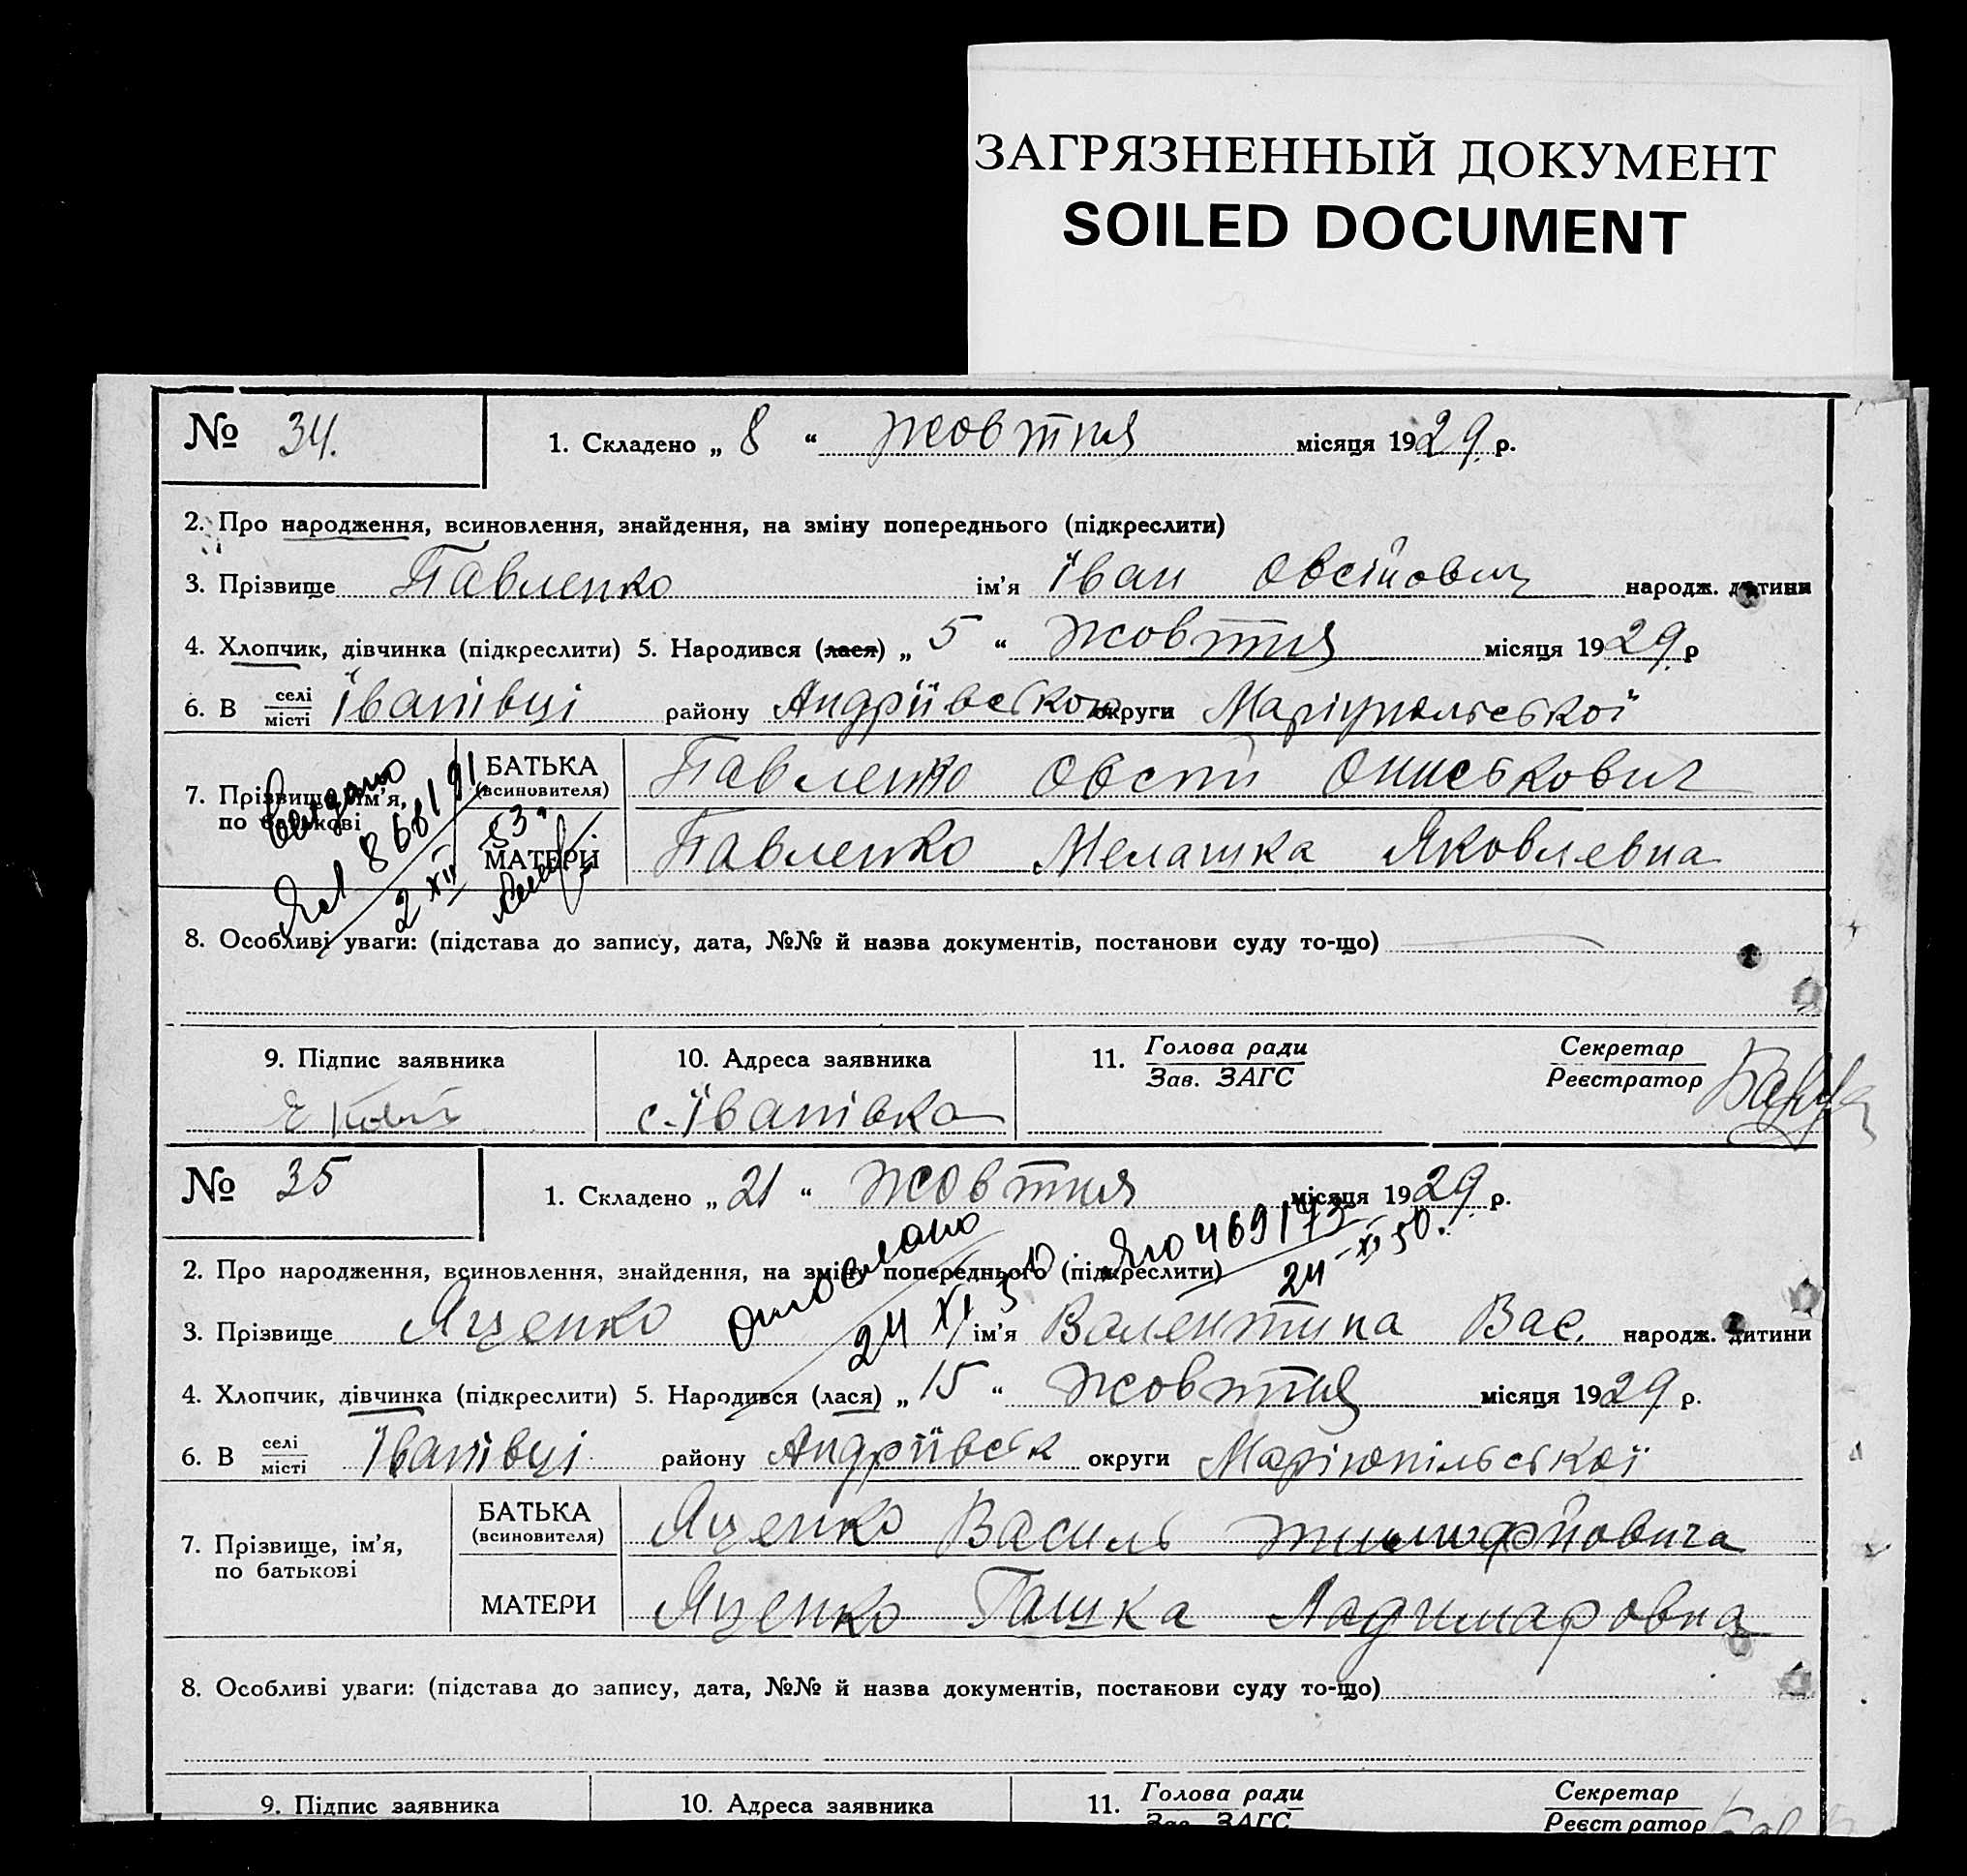 ЗАГРЯЗНЕННЫЙ ДОКУМЕНТ
SOILED DOCUMENT
№ 34. 1. Складено „ 8 “ жовтня місяця 1929 р.
2. Про народження, всиновлення, знайдення, на зміну попереднього (підкреслити)
3. Прізвище Павленко ім’я Їван Овсійович народж. дитини
4. Хлопчик, дівчинка (підкреслити) 5. Народився (лася) „ 5 “ жовтня місяця 1929 р
6. В селі місті Їванівці району Андріївського округи Маріупольської
7. Прізвище, ім’я, по батькові
БАТЬКА (всиновителя) Павленко Овсій Ониськович
МАТЕРИ Павленко Мелашка Яковлевна
Выдано
868191
2 XII 53.
8. Особливі уваги: (підстава до запису, дата, №№ й назва документів, постанови суду то-що)
9. Підпис заявника 10. Адреса заявника 11. Голова ради Зав. ЗАГС Секретар Реєстратор
с. Їванівка
№ 35 1. Складено „ 21 “ жовтня місяця 1929 р.
2. Про народження, всиновлення, знайдення, на зміну попереднього (підкреслити)
469173
24 XI 50.
24 XI 50
3. Прізвище Яценко ім’я Валентина Вас. народж. дитини
4. Хлопчик, дівчинка (підкреслити) 5. Народився (лася) „ 15 “ жовтня місяця 1929 р.
6. В селі місті Їванівці району Андріївськ округи Маріюпільської
7. Прізвище, ім’я, по батькові
БАТЬКА (всиновителя) Яценко Василь Тимофійовича
МАТЕРИ Яценко Гашка Ладимаровна
8. Особливі уваги: (підстава до запису, дата, №№ й назва документів, постанови суду то-що)
9. Підпис заявника 10. Адреса заявника 11. Голова ради Зав. ЗАГС Секретар Реєстратор